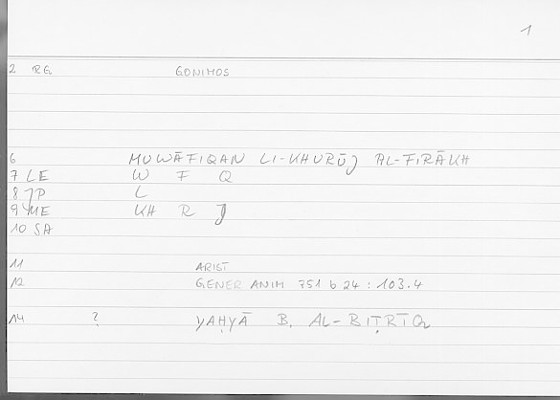 1
2 RG GONIMOS
6 MUWĀFIQAN LI-KHURŪJ AL-FIRĀKH
7 LE W F Q
8 JP L
9 ME KH R J
10 SA
11 ARIST
12 GENER ANIM 751 b 24 : 103.4
14 ? YAḤYĀ B. AL-BIṬRĪQ